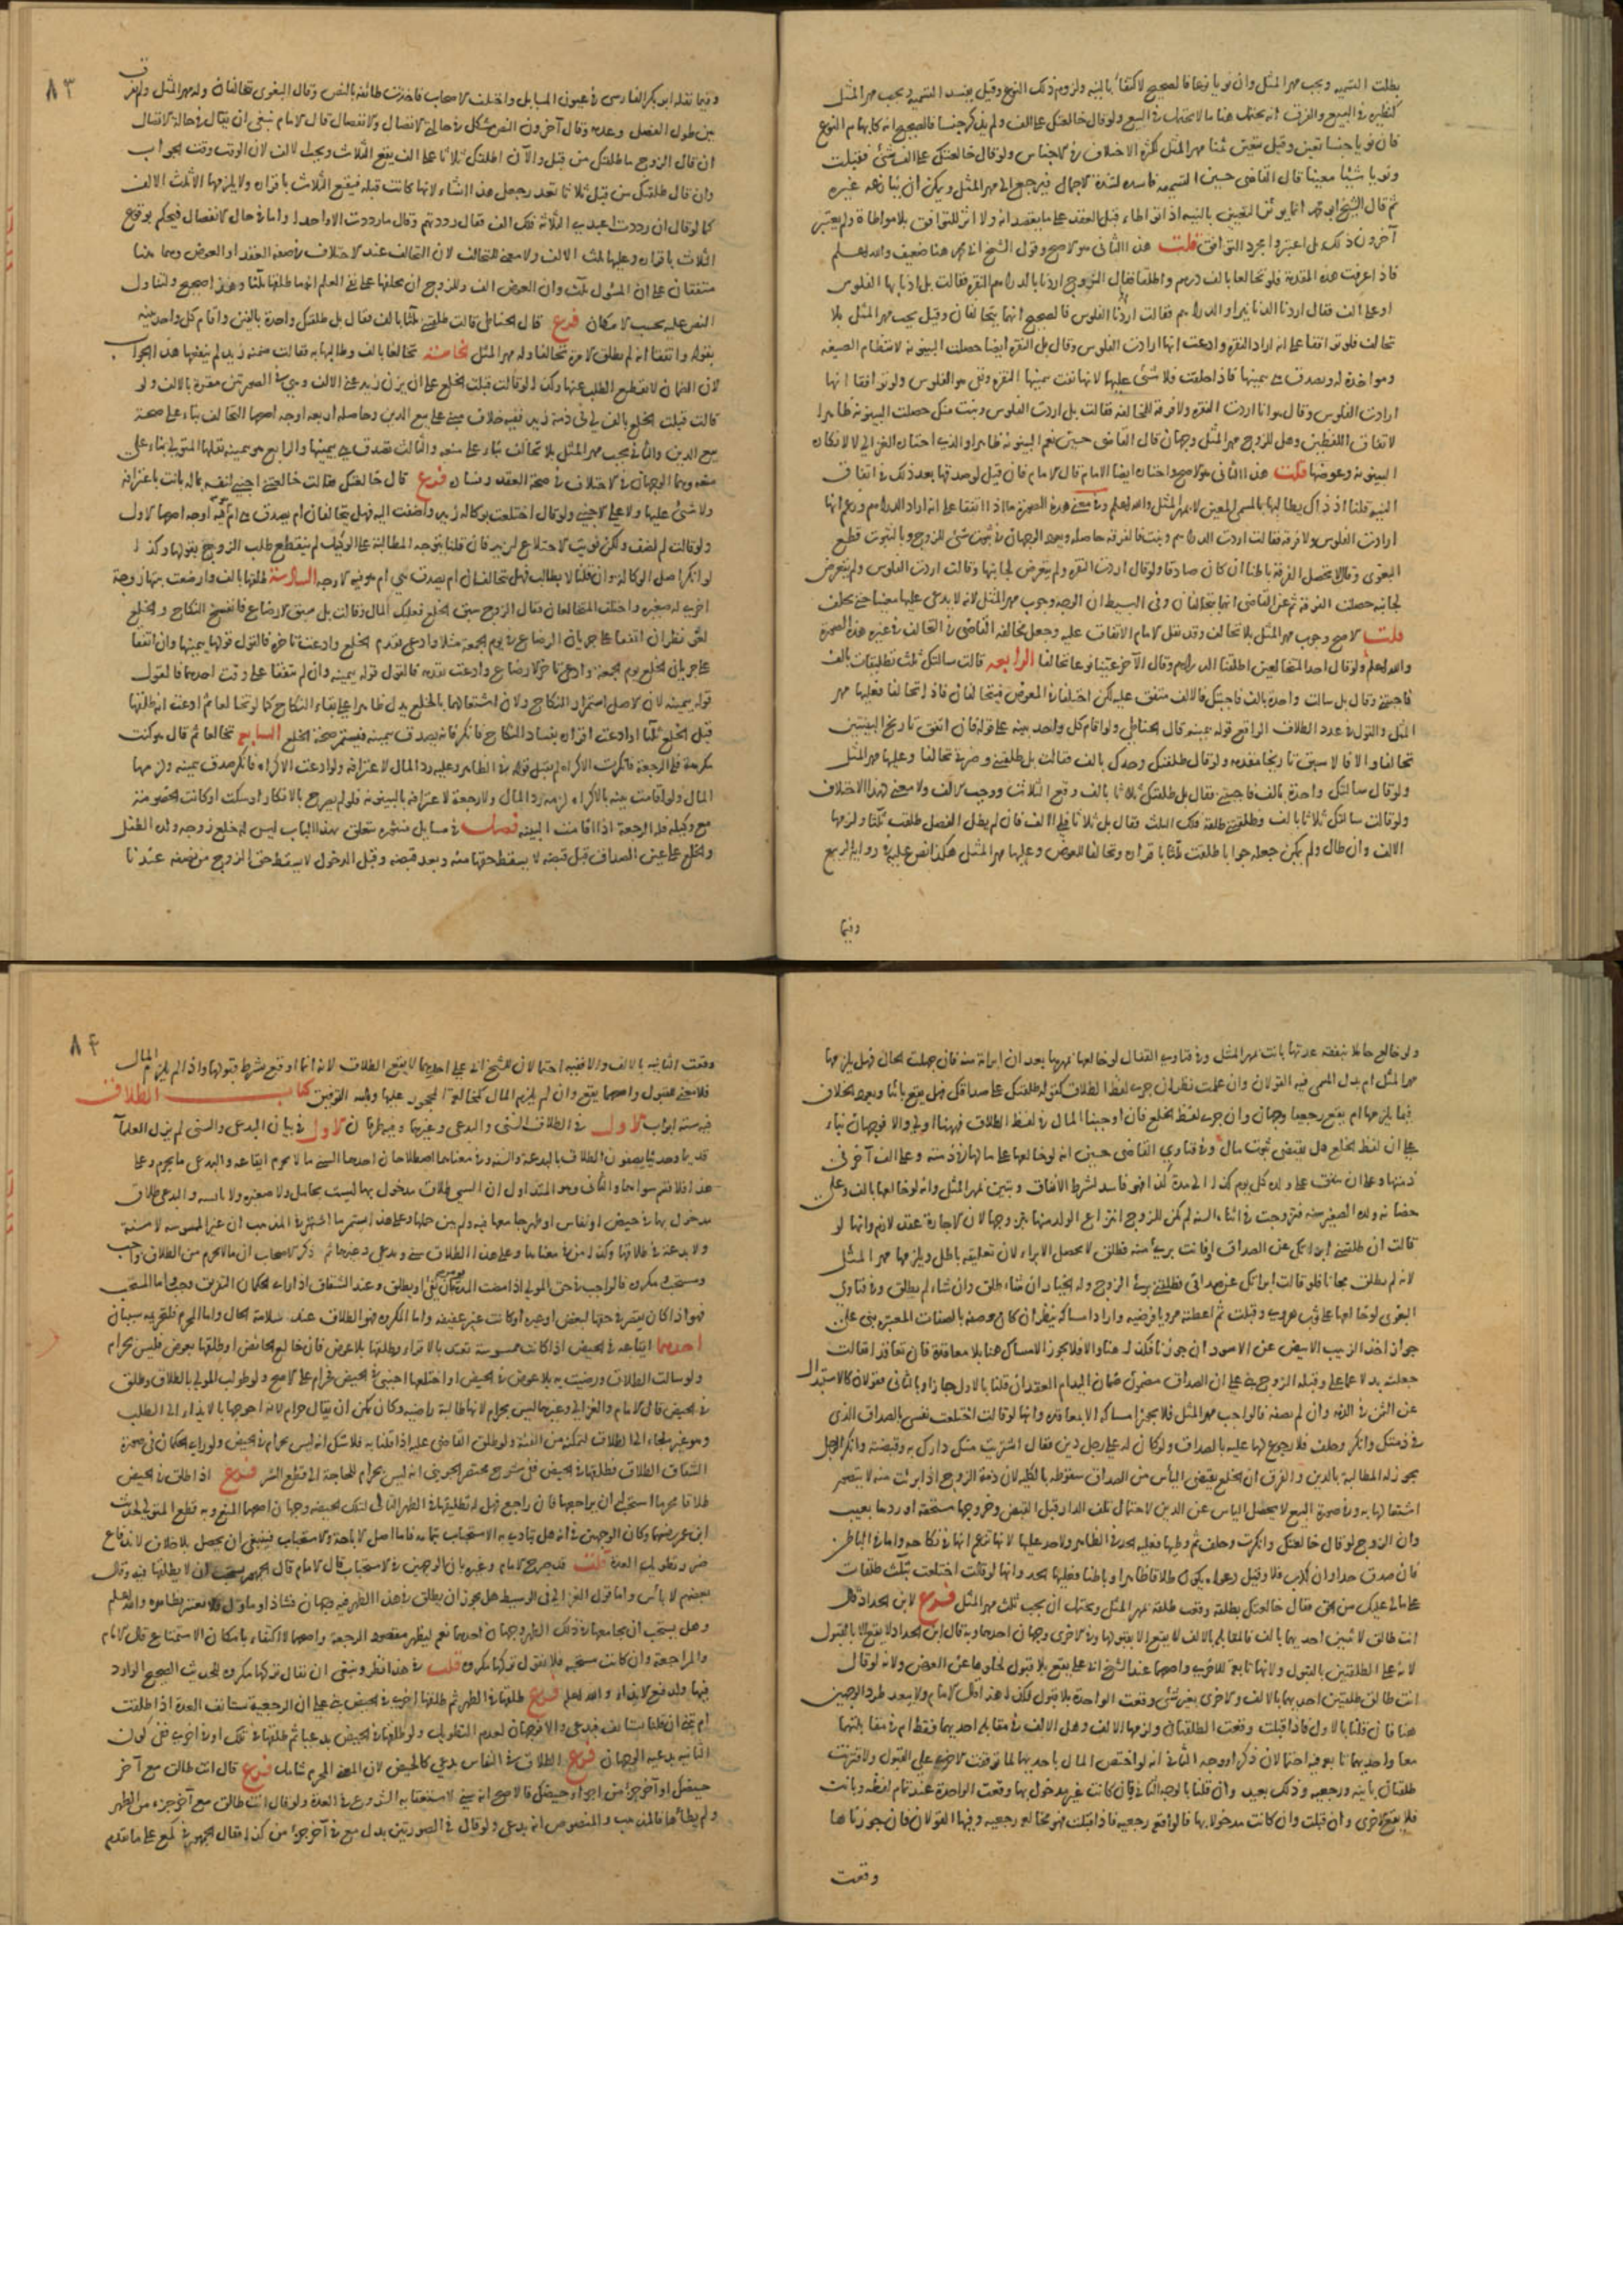 بطلت التسمية ويجب مهر المثل وان نويا نوعا فالصحيح الاكتفاء بالنية ولزوم ذلك النوع وقيل تفسد التسمية ويجب مهر المثل
كنظيره في البيع والفرق انه يحتمل هنا ما لا يحتمل في البيع ولو قال خالعتك على الف ولم يذكر جنسا فالصحيح انه كابهام النوع
فان نويا جنسا تعين وقيل يتعين هنا مهر المثل لكثرة الاختلاف في الاجناس ولو قال خالعتك على الف شئ فقبلت
ونويا شيئا معينا قال القاضي حسين التسمية فاسدة لشدة الاجمال فيرجع الى مهر المثل ويمكن ان ينازعه غيره
ثم قال الشيخ ابو محمد انما يؤثر التعيين بالنية اذا تواطا قبل العقد على ما يقصدانه ولا اثر للتوافق بلا مواطاة ولم يعتبر
آخرون ذلك بل اعتبروا مجرد التوافق قلت هذا الثاني هو الاصح وقول الشيخ ابي محمد هنا ضعيف والله اعلم
فاذا عرفت هذه المقدمة فلو تخالعا بالف درهم واطلقا فقال الزوج اردنا بالدراهم النقرة فقالت بل اردنا بها الفلوس
او على الف فقال اردنا الدنانير او الدراهم فقالت اردنا الفلوس فالصحيح انهما يتحالفان وقيل يجب مهر المثل بلا
تحالف فلو توافقا على انه اراد النقرة وادعت انها ارادت الفلوس وقال بل النقرة ايضا حصلت البينونة لانتظام الصيغة
ومواخذة له ويصدق هي بيمينها فاذا حلفت فلا شئ عليها لانها نفت بيمينها النقرة ونفى هو الفلوس ولو توافقا انها
ارادت الفلوس وقال هو انا اردت النقرة ولا فرقة للمخالفة فقالت بل اردت الفلوس وبنت منك حصلت البينونة ظاهرا
لاتفاق اللفظين وهل للزوج مهر المثل وجهان قال القاضي حسين نعم البينونة ظاهرا والذي اختاره الغزالي لا لانكاره
البينونة وعوضها قلت هذا الثاني هو الاصح واختاره ايضا الامام قال الامام فان قيل لو صدقها بعد ذلك في اتفاق
النية قلنا اذ ذاك يطالبها بالمسمى المعين لا بمهر المثل والله اعلم وفي معنى هذه الصورة ما اذا اتفقا على انه اراد الدراهم وزعم انها
ارادت الفلوس ولا فرقة فقالت اردت الدراهم وبنت فالفرقة حاصلة ويعود الوجهان في ثبوت شئ للزوج وبالثبوت قطع
البغوي وقالا تحصل الفرقة باطنا ان كان صادقا ولو قال اردت النقرة ولم يتعرض لجانبها وقالت اردت الفلوس ولم يتعرض
لجانبه حصلت الفرقة ثم عن القاضي انهما يتحالفان وفي البسيط ان الوجه وجوب مهر المثل لانه لا يدعي عليها معينا حتى يحلف
قلت الاصح وجوب مهر المثل بلا تحالف وقد نقل الامام الاتفاق عليه وجعل مخالفة القاضي في التحالف في غير هذه الصورة
والله اعلم ولو قال احد المتخالعين اطلقنا الدراهم وقال الآخر عيننا نوعا تحالفا الرابعه قالت سالتك ثلث تطليقات بالف
فاجبتني وقال بل سالت واحدة بالف فاجبتك فالالف متفق عليه لكن اختلفا في المعوض فيتحالفان فاذا تحالفا فعليها مهر
المثل والقول في عدد الطلاق الواقع قوله بيمينه قال الحناطي ولو اقام كل واحد بينة على قوله فان اتفق تاريخ البينتين
تحالفا والا فالاسبق تاريخا مقدمه ولو قال طلقتك وحدك بالف فقالت بل طلقتني وضرتي تحالفا وعليها مهر المثل
ولو قال سالتني واحدة بالف فاجبتني فقال بل طلقتك ثلاثا بالف وقع الثلاث ووجب الالف ولا معنى لهذا الاختلاف
ولو قالت سالتك ثلاثا بالف وطلقتني طلقة فلك الثلث فقال بل ثلاثا فلي الالف فان لم يطل الفصل طلقت ثلثا ولزمها
الالف وان طال ولم يمكن جعله جوابا طلقت ثلثا باقراره وتحالفا للعوض وعليها مهر المثل هكذا نص عليه في رواية الربيع
وفيما
٨٣
وفيما نقله ابو بكر الفارسي في عيون المسايل واختلف الاصحاب فاخذت طائفة بالنص وقال البغوي تحالفان وله مهر المثل ولم يفرق
بين طول الفصل وعدمه وقال آخرون النص مشكل في حالتي الاتصال والانفصال قال الامام ينبغي ان يقال في حالة الاتصال
ان قال الزوج ما طلقتك من قبل والآن اطلقتك ثلاثا على الف يقع الثلاث ويجب الالف لان الوقت وقت الجواب
وان قال طلقتك من قبل ثلاثا تعذر جعل هذا انشاء لانها كانت قبله فيقع الثلاث باقراره ولا يلزمها الا ثلث الالف
كما لو قال ان رددت اعبدي الثلاثة فلك الف فقال رددتهم وقال ما رددت الا واحدا واما في حال الانفصال فيحكم بوقوع
الثلاث باقراره وعليها ثلث الالف ولا معنى للتحالف لان التحالف عند الاختلاف في صفة العقد او العوض وهما هنا
متفقان على ان المسئول ثلث وان العوض الف وللزوج ان يحلفها على نفي العلم انه ما طلقها ثلثا وهذا صحيح ولتناول
النص عليه بحسب الامكان فرع قال الحناطي قالت طلقتني ثلثا بالف فقال بل طلقتك واحدة بالفين واقام كل واحد بينة
بقوله واتفقا انه لم يطلق الا مرة تحالفا وله مهر المثل الخامسة تخالعا بالف وطالبها به فقالت ضمنه زيد لم ينفعها هذا الجواب
لان الضمان لا يقطع الطلب عنها وكذا لو قالت قبلت الخلع على ان يزن زيد عني الالف وهي في الصورتين مقرة بالالف ولو
قالت قبلت الخلع بالف لي في ذمة زيد ففيه خلاف مبني على بيع الدين وحاصله اربعة اوجه اصحها التحالف بناء على صحة
بيع الدين والثاني يجب مهر المثل بلا تحالف بناء على منعه والثالث تصدق هي بيمينها والرابع هو بيمينه نقلها المتولي بناء على
منعه وهما الوجهان في الاختلاف في صحة العقد وفساده فرع قال خالعتك فقالت خالعني اجنبي لنفسه بماله بانت باعترافه
ولا شئ عليها ولا على الاجنبي ولو قال اختلعت بوكالة زيد واضفت اليه فهل يتحالفان ام يصدق هي ام هو فيه اوجه اصحها الاول
ولو قالت لم اضف ولكن نويت الاختلاع لزيد فان قلنا بتوجه المطالبة على الوكيل لم ينقطع طلب الزوج بقولها وكذا
لو انكر اصل الوكالة وان قلنا لا يطالب فهل يتحالفان ام يصدق هي ام هو فيه الاوجه السادسة طلقها بالف وارضعت بنتها زوجة
اخرى له صغيرة واختلف المتخالعان فقال الزوج سبق الخلع فعليك المال وقالت بل سبق الارضاع فانفسخ النكاح والخلع
لغو نظر ان اتفقا على جريان الرضاع في يوم الجمعة مثلا وادعى تقدم الخلع وادعت تاخره فالقول قولها بيمينها وان اتفقا
على جريان الخلع يوم الجمعة وادعى تاخر الارضاع وادعت تقدمه فالقول قوله بيمينه وان لم يتفقا على وقت احدهما فالقول
قوله بيمينه لان الاصل استمرار النكاح ولان اشتغالهما بالخلع يدل ظاهرا على بقاء النكاح كما لو تخالعا ثم ادعت انه طلقها
قبل الخلع ثلثا او ادعت اقراره بفساد النكاح فانكر فانه يصدق بيمينه فيستمر صحة الخلع السابع تخالعا ثم قال هو كنت
مكرهة فلي الرجعة فانكرت الاكراه لم يقبل قوله في الظاهر وعليه رد المال لاعترافه ولو ادعت الاكراه فانكر صدق بيمينه ولزمها
المال ولو اقامت بينة بالاكراه لزمه رد المال ولا رجعة لاعترافه بالبينونة فلو لم يصرح بالانكار او سكت او كانت الخصومة
مع وكيله فله الرجعة اذا اقامت البينة فصل في مسايل منثورة تتعلق بهذا الباب ليس له خلع زوجة ولده الطفل
والخلع على عين الصداق قبل قبضه لا يسقط حقها منه وبعد قبضه وقبل الدخول لا يسقط حق الزوج من نصفه عندنا
ولو خالع حاملا بنفقة عدتها بانت بمهر المثل وفي فتاوى القفال لو خالعها بمهرها بعد ان ابرائه منه فان جهلت الحال فهل يلزمها
مهر المثل ام بدل المسمى فيه القولان وان علمت نظر ان جرى لفظ الطلاق كقوله طلقتك على صداقك فهل يقع بائنا ويعود الخلاف
فيما يلزمها ام يقع رجعيا وجهان وان جرى لفظ الخلع فان اوجبنا المال في لفظ الطلاق فههنا اولى والا فوجهان بناء
على ان لفظ الخلع هل يقتضي ثبوت مال وفي فتاوي القاضي حسين انه لو خالعها على ما لها في ذمته وعلى الف آخر في
ذمتها وعلى ان ينفق على ولده كل يوم كذا الى مدة كذا فهو فاسد لشرط الانفاق وتبين بمهر المثل وانه لو خالعها بالف وعلى
حضانة ولده الصغير سنة فتزوجت في اثناء السنة لم يكن للزوج انتزاع الولد منها بتزوجها لان الاجارة عقد لازم وانها لو
قالت ان طلقتني ابراتك عن الصداق او فانت برئ منه فطلق لا يحصل الابراء لان تعليقه باطل ويلزمها مهر المثل
لانه لم يطلق مجانا فلو قالت ابراتك عن صداقي فطلقني برئ الزوج وله الخيار ان شاء طلق وان شاء لم يطلق وفي فتاوي
البغوي لو خالعها على ثوب هروي وقبلت ثم اعطته مرويا فرضيه واراد امساكه ينظر ان كان وصفه بالصفات المعتبرة بني على
جواز اخذ الزبيب الابيض عن الاسود ان جوزنا فكذلك هنا والا فلا يجوز الامساك هنا بلا معاقدة فان تعاقدا فقالت
جعلته بدلا عما علي وقبله الزوج بني على ان الصداق مضمون ضمان اليد ام العقد ان قلنا بالاول جاز او بالثاني فقولان كالاستبدال
عن الثمن في الذمة وان لم يصفه فالواجب مهر المثل فلا يجوز امساكه الا بمعاقدة وانها لو قالت اختلعت نفسي بالصداق الذي
في ذمتك وانكر وحلف فلا رجوع لها عليه بالصداق ولو كان له على رجل دين فقال اشتريت منك دارك به وقبضته وانكر الرجل
يجوز له المطالبة بالدين والفرق ان الخلع يقتضي اليأس من الصداق سقوطه بالكلية لان ذمة الزوج اذا برئت منه لا يتصور
اشتغالها به وفي صورة البيع لا يحصل الياس عن الدين لاحتمال تلف الدار قبل القبض وخروجها مستحقة او ردها بعيب
وان الزوج لو قال خالعتك وانكرت وحلفت ثم وطيها فعليه الحد في الظاهر ولا حد عليها لانها تزعم انها في نكاحه واما في الباطن
فان صدق حد اوان كذب فلا وقيل دعواه يكون طلاقا ظاهرا وباطنا فعليها الحد وانها لو قالت اختلعت بثلث طلقات
على مالي عليك من الحق فقال خالعتك بطلقة وقعت طلقة بمهر المثل ويحتمل ان يجب ثلث مهر المثل فروع لابن الحداد قال
انت طالق ثنتين احديهما بالف فالملقابلة بالالف لا يقع الا بقبولها وفي الاخرى وجهان احدهما وبه قال ابن الحداد لا يقع الا بالقبول
لانه على الطلقتين بالقبول ولانها تابعة للاخرى واصحهما عند الشيخ ابي علي يقع بلا قبول لخلوها عن العوض ولانه لو قال
انت طالق طلقتين احديهما بالالف والاخرى بغير شئ وقعت الواحدة بلا قبول فكذا هذا قال الامام ولا يبعد طرد الوجهين
هنا فان قلنا بالاول فاذا قبلت وقعت الطلقتان ولزمها الالف وهل الالف في مقابلة احديهما فقط ام في مقابلتهما
معا واحديهما تابعة فيه احتمالان ذكرا ووجه الثاني انه لو اختص المال باحديهما لما توقفت الاخرى على القبول ولافترقت
طلقتان باينة ورجعية وذلك بعيد وان قلنا بالوجه الثاني فان كانت غير مدخول بها وقعت الواحدة عند تمام لفظه وبانت
فلا يقع الاخرى وان قبلت وان كانت مدخولا بها فالواقع رجعية فاذا قبلت فهو مخالعة رجعية وفيها القولان فان جوزناها
وقعت
٨٤
وقعت الثانيه بالالف والا ففيه احتمالان للشيخ ابي علي احدهما لا يقع الطلاق لانه انما اوقع بشرط قبولها واذا لم يلزم المال
فلا معنى للقبول واصحهما يقع وان لم يلزم المال كمخالعة المحجور عليها وبالله التوفيق كتاب الطلاق
فيه ستة ابواب الاول في الطلاق السني والبدعي وغيرهما وفيه طرفان الاول في بيان البدعي والسني لم يزل العلماء
قديما وحديثا يصفون الطلاق بالبدعة والسنة وفي معناهما اصطلاحان احدهما السني ما لا يحرم ايقاعه والبدعي ما يحرم وعلى
هذا فلا قسم سواهما والثاني وهو المتداول ان السني طلاق مدخول بها ليست بحامل ولا صغيرة ولا ائسة والبدعي طلاق
مدخول بها في حيض او نفاس او طهر جامعها فيه ولم يبن حملها وعلى هذا استمر ما اشتهر في المذهب ان غير الممسوسة لا سنة
ولا بدعة في طلاقها وكذا من في معناها وعلى هذا الطلاق سني وبدعي وغيرهما ثم ذكر الاصحاب ان ما لا يحرم من الطلاق واجب
ومستحب ومكروه فالواجب في حق المولي اذا مضت المدة يؤمر ان يفئ او يطلق وعند الشقاق اذا راى الحكمان التفريق وجب واما المستحب
فهو اذا كان يقصر في حقها لبغض او غيره او كانت غير عفيفة واما المكروه فهو الطلاق عند سلامة الحال واما المحرم فلتحريمه سببان
احدهما ايقاعه في الحيض اذا كانت ممسوسة تعتد بالاقراء وطلقها بلا عوض فان خالع الحائض او طلقها بعوض فليس بحرام
ولو سالت الطلاق ورضيت به بلا عوض في الحيض او اختلعها اجنبي في الحيض فحرام على الاصح ولو طولب المولي بالطلاق وطلق
في الحيض قال الامام والغزالي وغيرهما ليس بحرام لانها طالبة راضية وكان يمكن ان يقال حرام لانه احوجها بالايذاء الى الطلب
وهو غير ملجاء الى الطلاق لتمكنه من الفيئة ولو طلق القاضي عليه اذا قلنا به فلا شك انه ليس بحرام في الحيض ولو راى الحكمان في صورة
الشقاق الطلاق فطلقها في الحيض ففي شرح مختصر الجويني انه ليس بحرام للحاجة الى قطع الشر فرع اذا طلق في الحيض
طلاقا محرما استحب ان يراجعها فان راجع فهل له تطليقها في الطهر التالي لتلك الحيضة وجهان اصحهما المنع وبه قطع المتولي لحديث
ابن عمر رضي الله عنهما وكان الوجهين في انه هل يتادى به الاستحباب بتمامه فاما اصل الاباحة والاستحباب فينبغي ان يحصل بلا خلاف لاندفاع
ضرر تطويل العدة قلت قد صرح الامام وغيره بان الوجهين في الاستحباب قال الامام قال الجمهور يستحب ان لا يطلقها فيه وقال
بعضهم لا باس واما قول الغزالي في الوسيط هل يجوز ان يطلق في هذا الطهر فيه وجهان فشاذ او ماول فلا نغتر بظاهره والله اعلم
وهل يستحب ان يجامعها في ذلك الطهر وجهان احدهما نعم ليظهر مقصود الرجعة واصحهما الاكتفاء بامكان الاستمتاع قال الامام
والمراجعة وان كانت مستحبة فلا نقول تركها مكروه قلت في هذا نظر وينبغي ان يقال تركها مكروه للحديث الصحيح الوارد
فيها ولدفع الايذاء والله اعلم فرع طلقها في الطهر ثم طلقها اخرى في الحيض بني على ان الرجعية تستانف العدة اذا طلقت
ام تبني ان قلنا تستانف فبدعي والا فوجهان لعدم التطويل ولو طلقها في الحيض بدعيا ثم طلقها في تلك او في اخرى ففي كون
الثانية بدعية الوجهان فرع الطلاق في النفاس بدعي كالحيض لان المعنى المحرم شامل فرع قال انت طالق مع آخر
حيضك او آخر جزء من اجزاء حيضك فالاصح انه سني لاستعقابه الشروع في العدة ولو قال انت طالق مع آخر جزء من الطهر
ولم يطاها فالمذهب والمنصوص انه بدعي ولو قال في الصورتين بدل مع في آخر جزء من كذا فقال الجمهور في كمع على ما تقدم